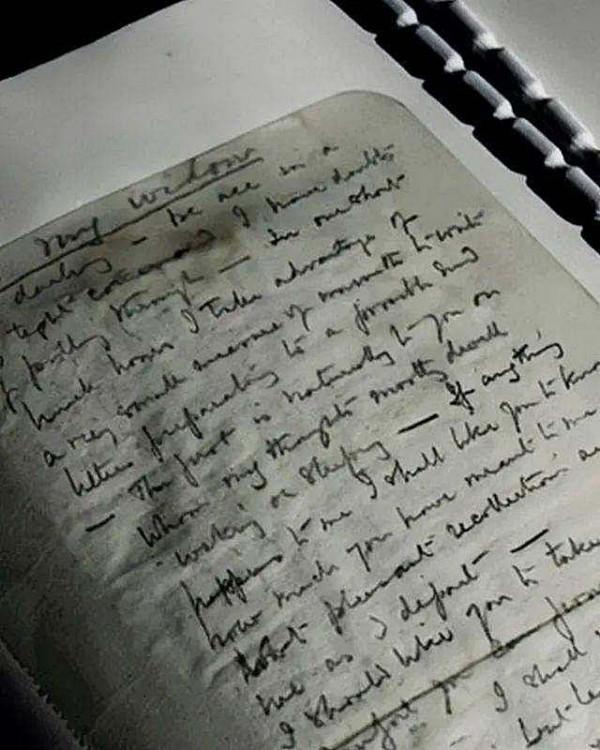 my widow
darling – we are in a
tight corner and I have doubts
of pulling through – In our short
lunch hours I take advantage of
a very small measure of warmth to write
letters preparatory to a possible end
– The first is naturally to you on
whom my thoughts mostly dwell
waking or sleeping – If anything
happens to me I shall like you to know
how much you have meant to me
that pleasant recollections
me as I depart –
I should like you to take
comfort you can from
I shall